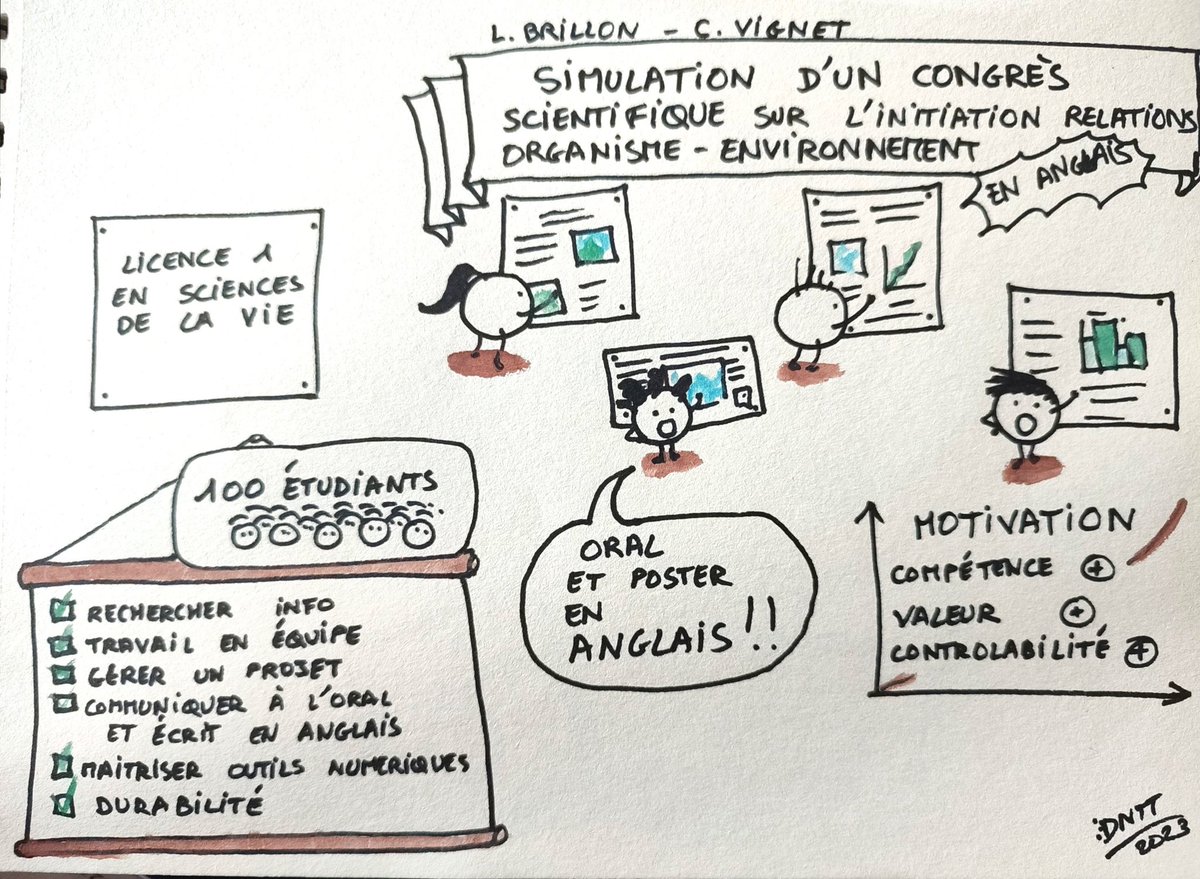 L. BRILLON - C. VIGNET
SIMULATION D'UN CONGRÈS
SCIENTIFIQUE SUR L'INITIATION RELATIONS
ORGANISME - ENVIRONNEMENT
EN ANGLAIS
LICENCE 1
EN SCIENCES
DE LA VIE
100 ÉTUDIANTS
RECHERCHER INFO
TRAVAIL EN ÉQUIPE
GÉRER UN PROJET
COMMUNIQUER À L'ORAL
ET ÉCRIT EN ANGLAIS
MAITRISER OUTILS NUMERIQUES
DURABILITÉ
ORAL
ET POSTER
EN
ANGLAIS !!
MOTIVATION
COMPÉTENCE +
VALEUR +
CONTROLABILITÉ +
:DNTT
2023